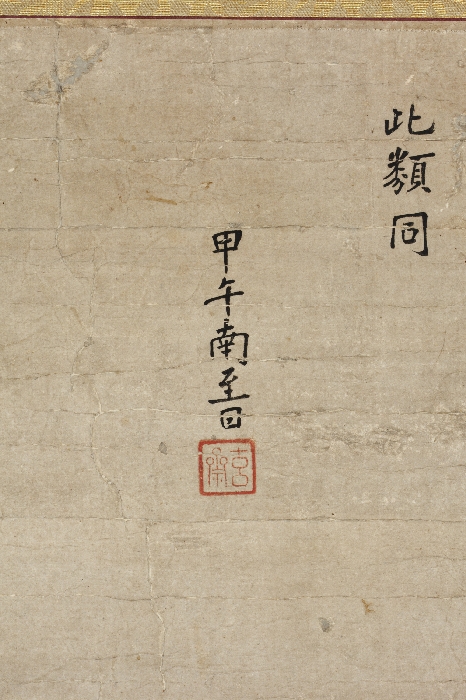 此類同
甲午南至日